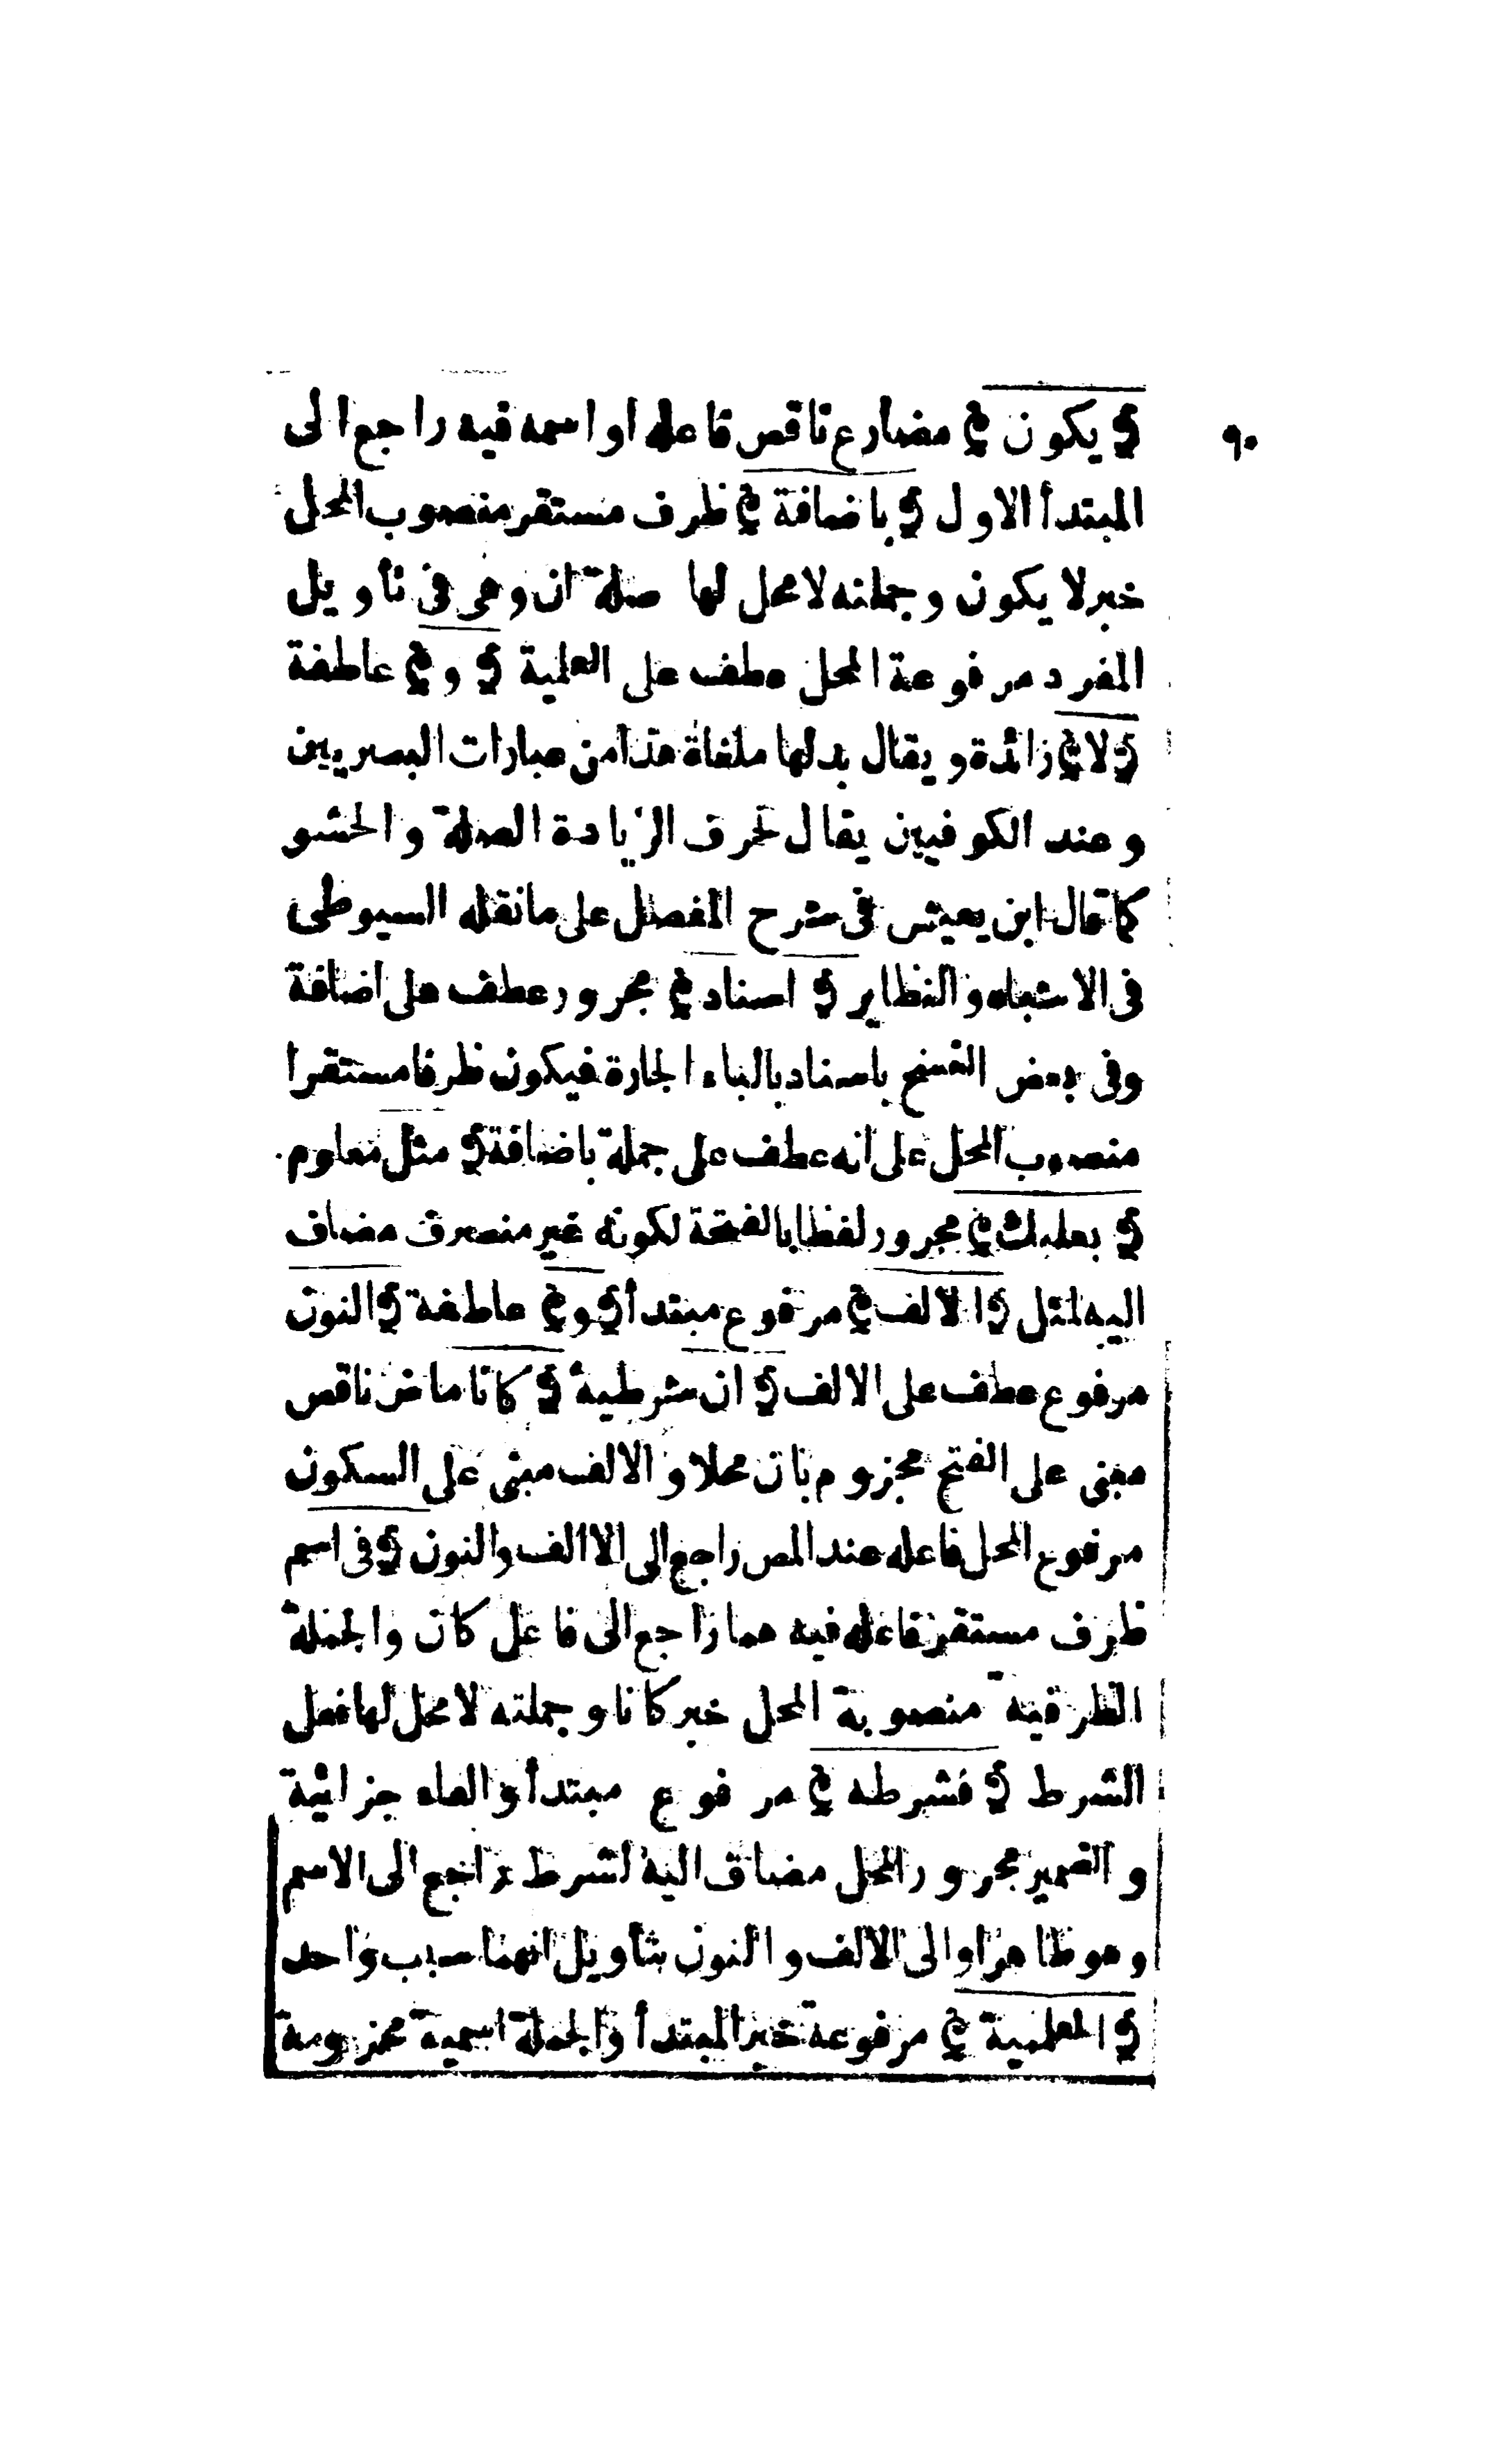 ٩٠
﴿ يكون ﴾ مضارع ناقص فاعله او اسمه فيه راجع الى
المبتدأ الاول ﴿ باضافة ﴾ ظرف مستقر منصوب المحل
خبر لا يكون وجملته لا محل لها صلة ان وهى فى تأويل
المفرد مرفوعة المحل عطف على العلمية ﴿ و ﴾ عاطفة
﴿ لا ﴾ زائدة ويقال بدلها ملغاة هذا من عبارات البصريين
وعند الكوفيين يقال لحرف الزيادة الصلة والحشو
كما قال ابن يعيش فى شرح المفصل على ما نقله السيوطى
فى الاشباه والنظاير ﴿ اسناد ﴾ مجرور عطف على اضافة
وفى بعض النسخ باسناد بالباء الجارة فيكون ظرفا مستقرا
منصوب المحل على انه عطف على جملة باضافة ﴿ مثل معلوم
﴿ بعلبك ﴾ مجرور لفظا بالفتحة لكونه غير منصرف مضاف
اليه لمثل ﴿ الالف ﴾ مرفوع مبتدأ ﴿ و ﴾ عاطفة ﴿ النون
مرفوع عطف على الالف ﴿ ان شرطية ﴿ كانا ماض ناقص
مبنى على الفتح مجزوم بان محلا والالف مبنى على السكون
مرفوع المحل فاعله عند المص راجع الى الاالف والنون ﴿ فى اسم
ظرف مستقر فاعله فيه هما راجع الى فاعل كان والجملة
الظرفية منصوبة المحل خبر كانا وجملته لا محل لها فعل
الشرط ﴿ فشرطه ﴾ مرفوع مبتدأ والفاء جزائية
والضمير مجرور المحل مضاف اليه لشرط راجع الى الاسم
وهو ظاهر او الى الالف والنون بتأويل انهما سبب واحد
﴿ العلمية ﴾ مرفوعة خبر المبتدأ والجملة اسمية مجزومة